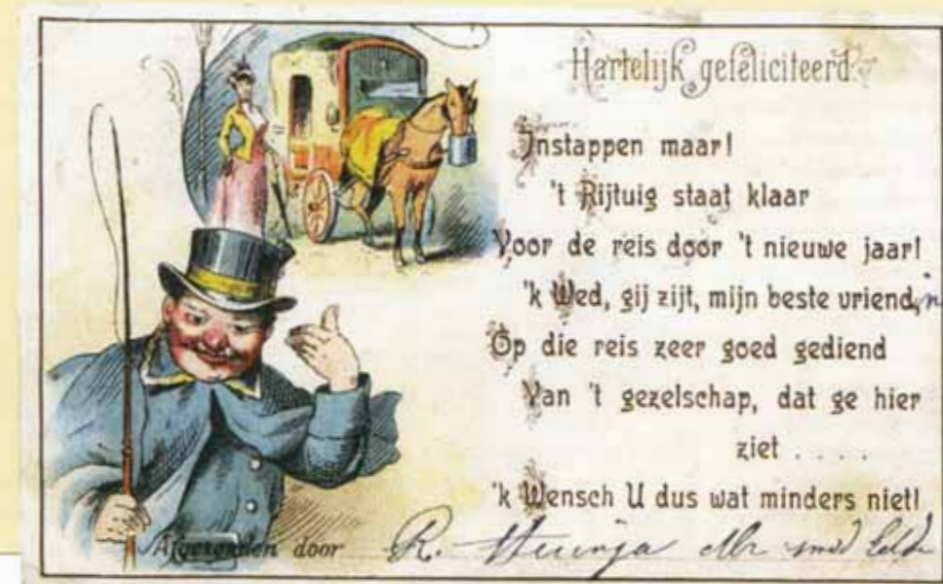 Hartelijk gefeliciteerd.
Instappen maar!
't Rijtuig staat klaar
Voor de reis door 't nieuwe jaar!
'k Wed, gij zijt, mijn beste vriend,in
Op die reis zeer goed gediend
Van 't gezelschap, dat ge hier
ziet . . . .
'k Wensch U dus wat minders niet!
Afgezonden door R.